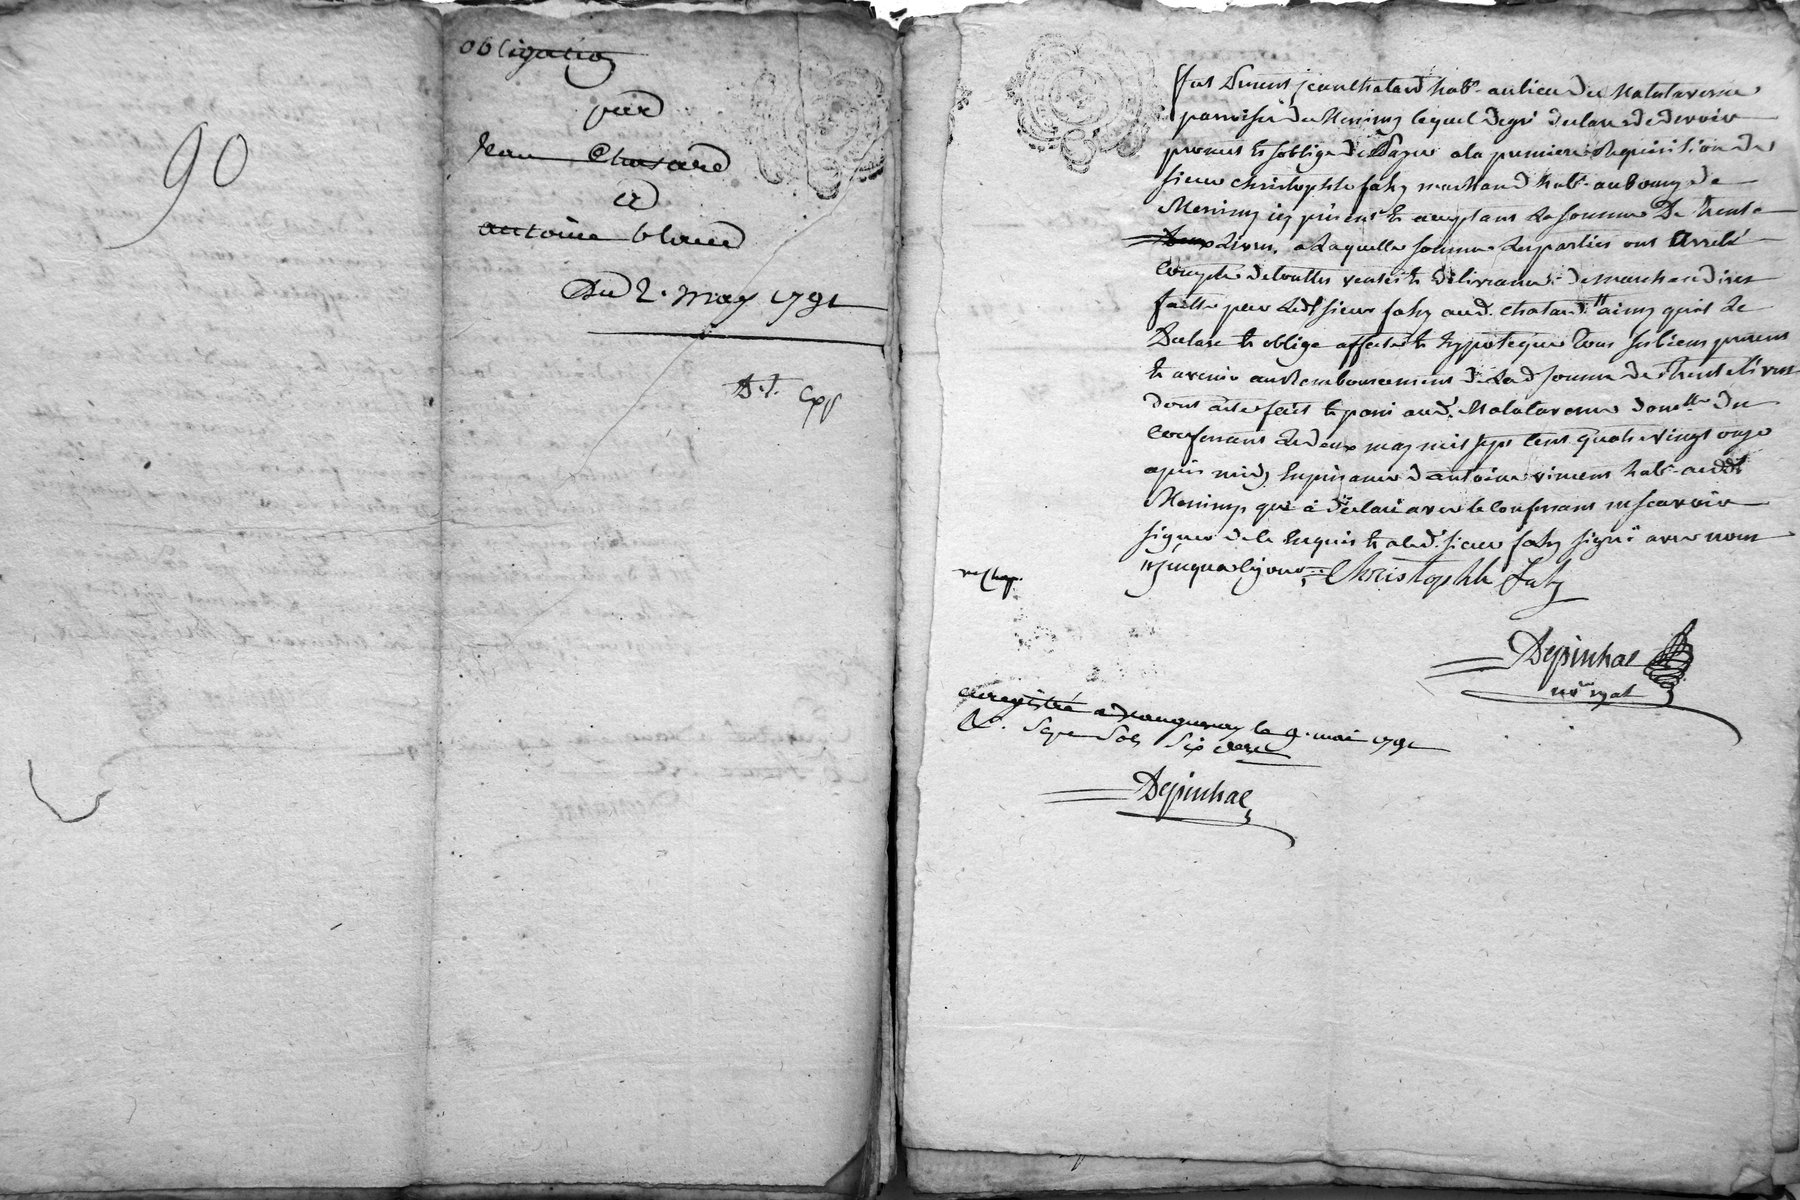 90
obligation
par
Jean Chasard
et
antoine blanc
Du 2. may 1791
D. t. Exp
fut present jean chatard hab. au lieu de Malataverne
parroisse de Monimp lequel de gré declare de devoir
promet et soblige de Payer a la premiere Requisition de
sieur christophle faby marchand hab. au bourg de
Monimp icy present et acceptant la somme De trente
livres, a laquelle somme les parties ont Arrete
compte de touttes ventes et delivrances de marchandises
faitte par led. sieur faby aud. chatard ainsy quil le
Declare et oblige affecte et hypoteque tous ses biens presents
et avenir au Remboursement de lad. somme de trente livres
dont acte fait et passé aud. Malataverne du
confessant le deux may mil sept cent quatre vingt onze
apres midy En presance d'antoine vincent hab. aud.
Monimp qui a declaré avec le confessant ne scavoir
signer de ce Enquis et led. sieur faby signé avec nous
Christophle Faby
Depinhac
no.re royal
enregistré a le 9. mai 1791
R. Sept Sols Six den.
Depinhac